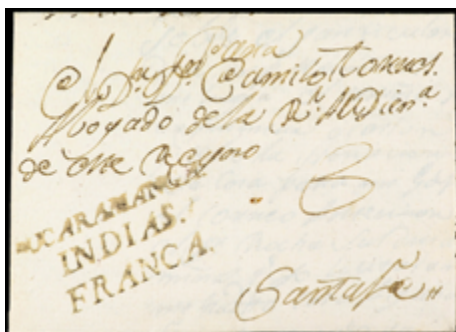 Para
Dr. Dn. Camilo Torres.
Abogado de la Rl. Audiena
de este reyno
BUCARAMANGA
INDIAS.
FRANCA.
Santafe